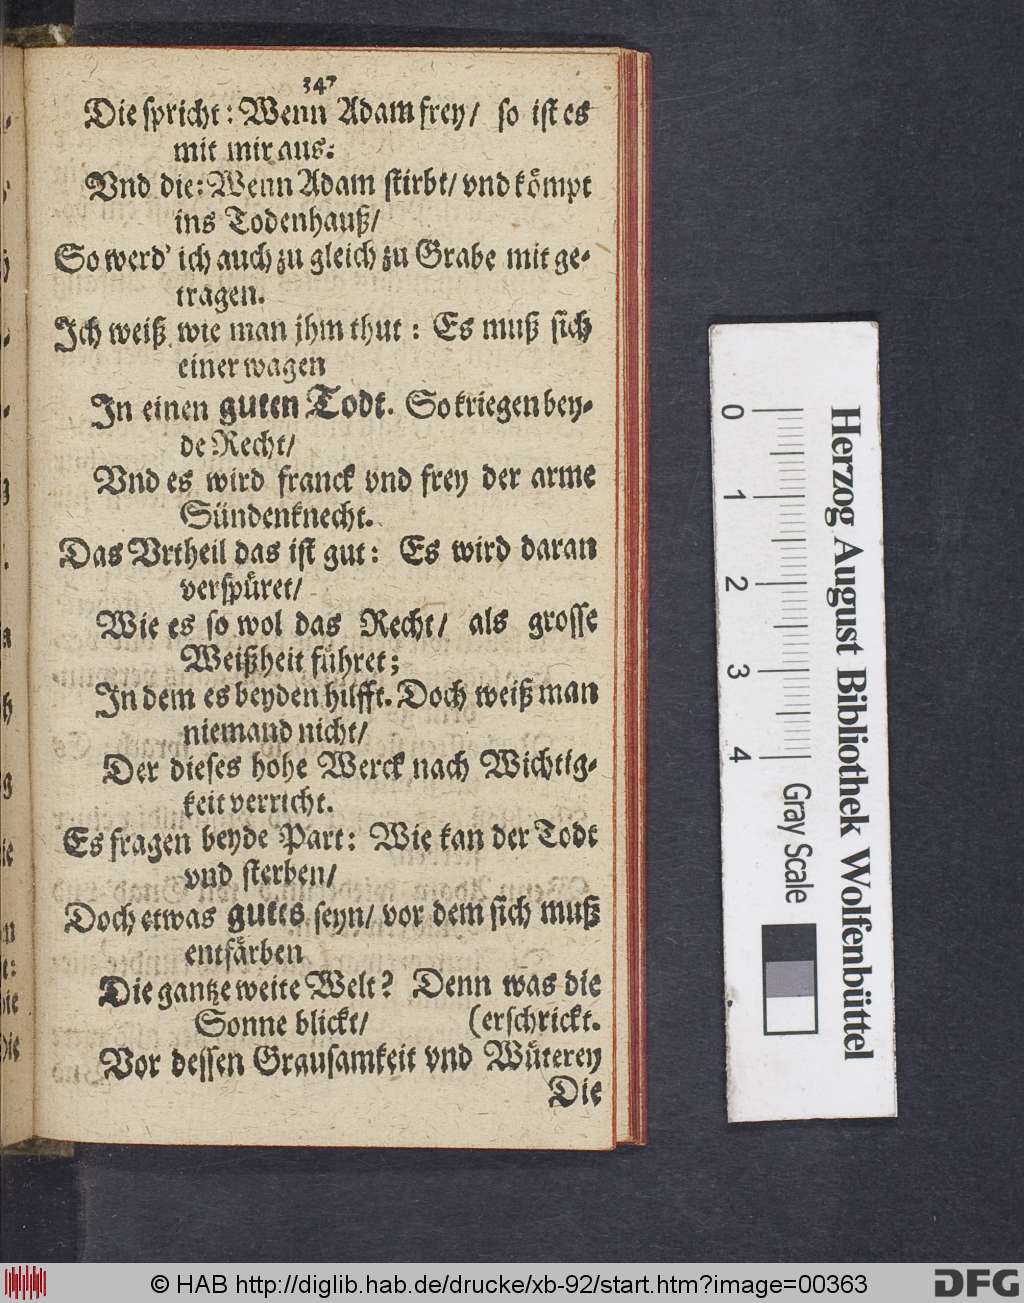 347
Die spricht: Wenn Adam frey/ so ist es
mit mir aus:
Vnd die: Wenn Adam stirbt/ vnd kömpt
ins Todenhauß/
So werd' ich auch zu gleich zu Grabe mit ge-
tragen.
Ich weiß wie man jhm thut: Es muß sich
einer wagen
In einen guten Todt. So kriegen bey-
de Recht/
Vnd es wird franck vnd frey der arme
Sündenknecht.
Das Vrtheil das ist gut: Es wird daran
verspüret/
Wie es so wol das Recht/ als grosse
Weißheit führet;
In dem es beyden hilfft. Doch weiß man
niemand nicht/
Der dieses hohe Werck nach Wichtig-
keit verricht.
Es fragen beyde Part: Wie kan der Todt
vnd sterben/
Doch etwas gutes seyn/ vor dem sich muß
entfärben
Die gantze weite Welt? Denn was die
Sonne blickt/ (erschrickt.
Vor dessen Grausamkeit vnd Wüterey
Die
0 1 2 3 4
Gray Scale
Herzog August Bibliothek Wolfenbüttel
© HAB http://diglib.hab.de/drucke/xb-92/start.htm?image=00363
DFG